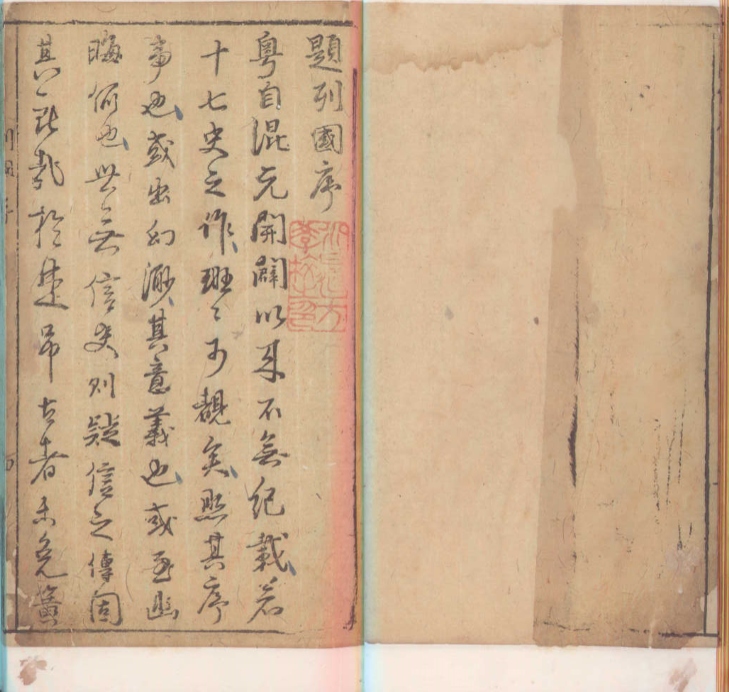 題列國序
粤自混元開闢以来不無紀載若
十七史之作班〻可覩矣然其序
事也或出幻渺其意義也或至幽
晦何也世無信史則疑信之傳固
其所哉於是吊古者未免簧
列國序